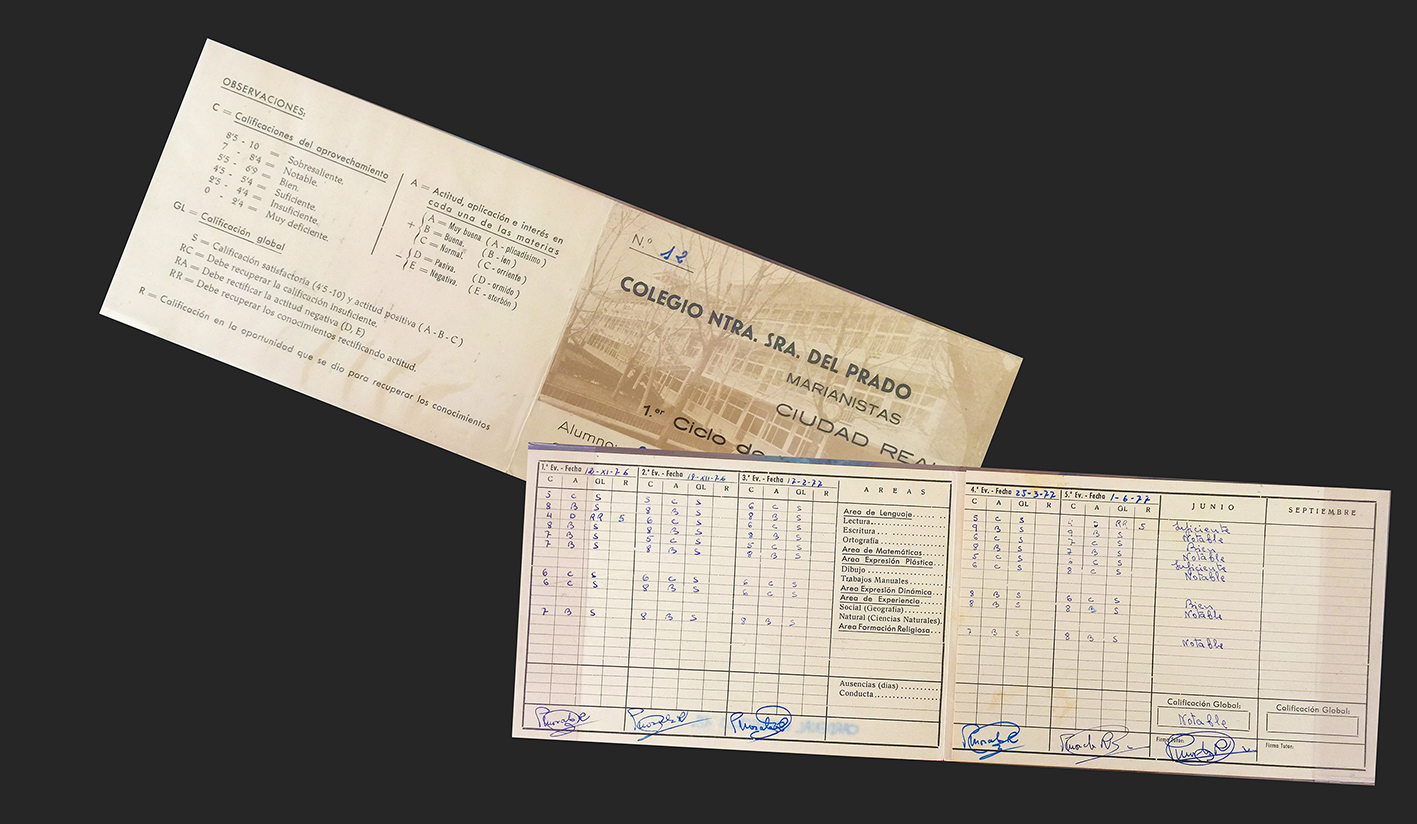 OBSERVACIONES:
C = Calificaciones del aprovechamiento
8'5 - 10 = Sobresaliente.
7 - 8'4 = Notable.
5'5 - 6'9 = Bien.
4'5 - 5'4 = Suficiente.
2'5 - 4'4 = Insuficiente.
0 - 2'4 = Muy deficiente.
GL = Calificación global
S = Calificación satisfactoria (4'5-10) y actitud positiva (A-B-C)
RC = Debe recuperar la calificación insuficiente.
RA = Debe rectificar la actitud negativa (D, E)
RR = Debe recuperar los conocimientos rectificando actitud.
R = Calificación en la oportunidad que se dio para recuperar los conocimientos
A = Actitud, aplicación e interés en
cada una de las materias
+ { A = Muy buena (A - plicadísimo)
B = Buena. (B - ien)
C = Normal. (C - orriente)
- { D = Pasiva. (D - ormido)
E = Negativa. (E - storbón)
N.º 12
COLEGIO NTRA. SRA. DEL PRADO
MARIANISTAS
CIUDAD REAL
1.er Ciclo de
Alumno:
1.ª Ev. - Fecha 12-XI-76 2.ª Ev. - Fecha 3.ª Ev. - Fecha 17-2-77
C A GL R C A GL R C A GL R A R E A S
5 C S 5 C S 6 C S Area de Lenguaje
8 B S 8 B S 8 B S Lectura
4 D RR 5 6 C S 6 C S Escritura
8 B S 8 B S 8 B S Ortografía
7 B S 5 C S 5 C S Area de Matemáticas
7 B S 8 B S 8 B S Area Expresión Plástica
Dibujo
Trabajos Manuales
6 C S 6 C S 6 C S Area Expresión Dinámica
6 C S 8 B S 6 C S Area de Experiencia
Social (Geografía)
Natural (Ciencias Naturales).
7 B S 8 B S 8 B S Area Formación Religiosa
Ausencias (días)
Conducta
4.ª Ev. - Fecha 25-3-77 5.ª Ev. - Fecha 1-6-77 JUNIO SEPTIEMBRE
C A GL R C A GL R
5 C S RR 5 Suficiente
9 B S 9 B S Notable
6 C S 7 C S Bien
8 B S 7 B S Notable
5 C S C S Suficiente
6 C S 8 C S Notable
8 B S 6 C S Bien
8 B S 8 B S Notable
7 B S 8 B S Notable
Calificación Global: Calificación Global:
Notable
Firma Tutor: Firma Tutor: